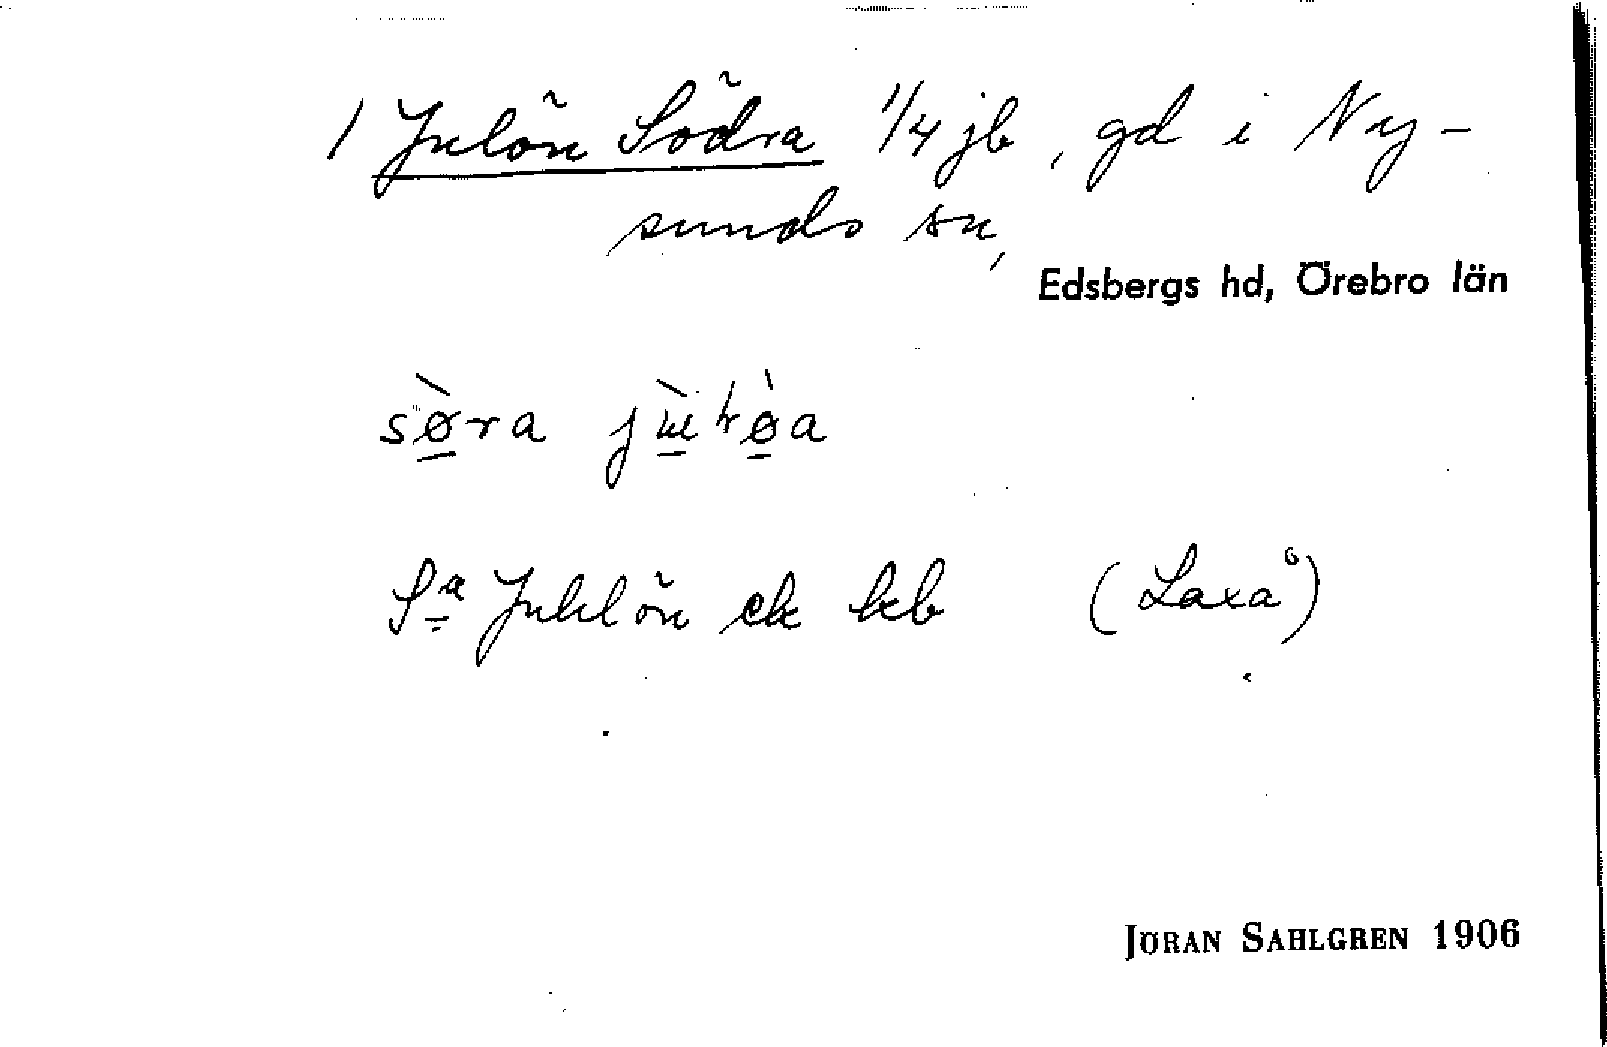 1 Julön Södra 1/4 jb, gd i Ny-
sunds sn,
Edsbergs hd, Örebro län
Sa Juhlön ek kb (Laxå)
JÖRAN SAHLGREN 1906